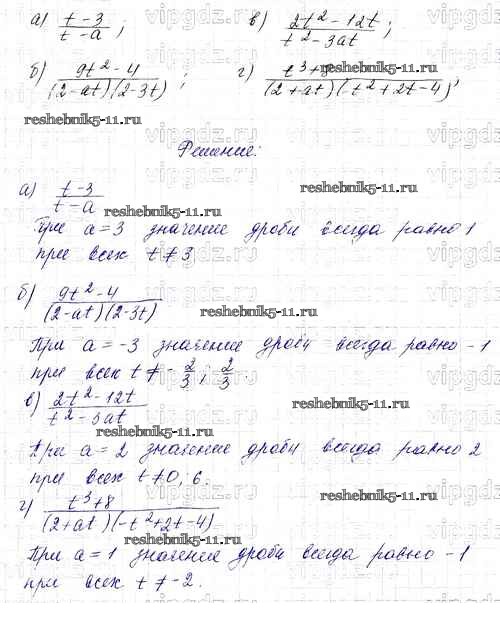 а) t-3 / t-a ;
в) 2t²-12t / t²-3at ;
б) 9t²-4 / (2-at)(2-3t) ;
г) t³+8 / (2+at)(t²+2t-4) ,
reshebnik5-11.ru
reshebnik5-11.ru
Решение:
а) t-3 / t-a
reshebnik5-11.ru
reshebnik5-11.ru
При a=3 значение дроби всегда равно 1
при всех t≠3
б) 9t²-4 / (2-at)(2-3t)
reshebnik5-11.ru
При a=-3 значение дроби всегда равно -1
при всех t≠-2/3; 2/3.
в) 2t²-12t / t²-3at
reshebnik5-11.ru
reshebnik5-11.ru
При a=2 значение дроби всегда равно 2
при всех t≠0, 6.
г) t³+8 / (2+at)(-t²+2t-4)
reshebnik5-11.ru
При a=1 значение дроби всегда равно -1
при всех t≠-2.
reshebnik5-11.ru